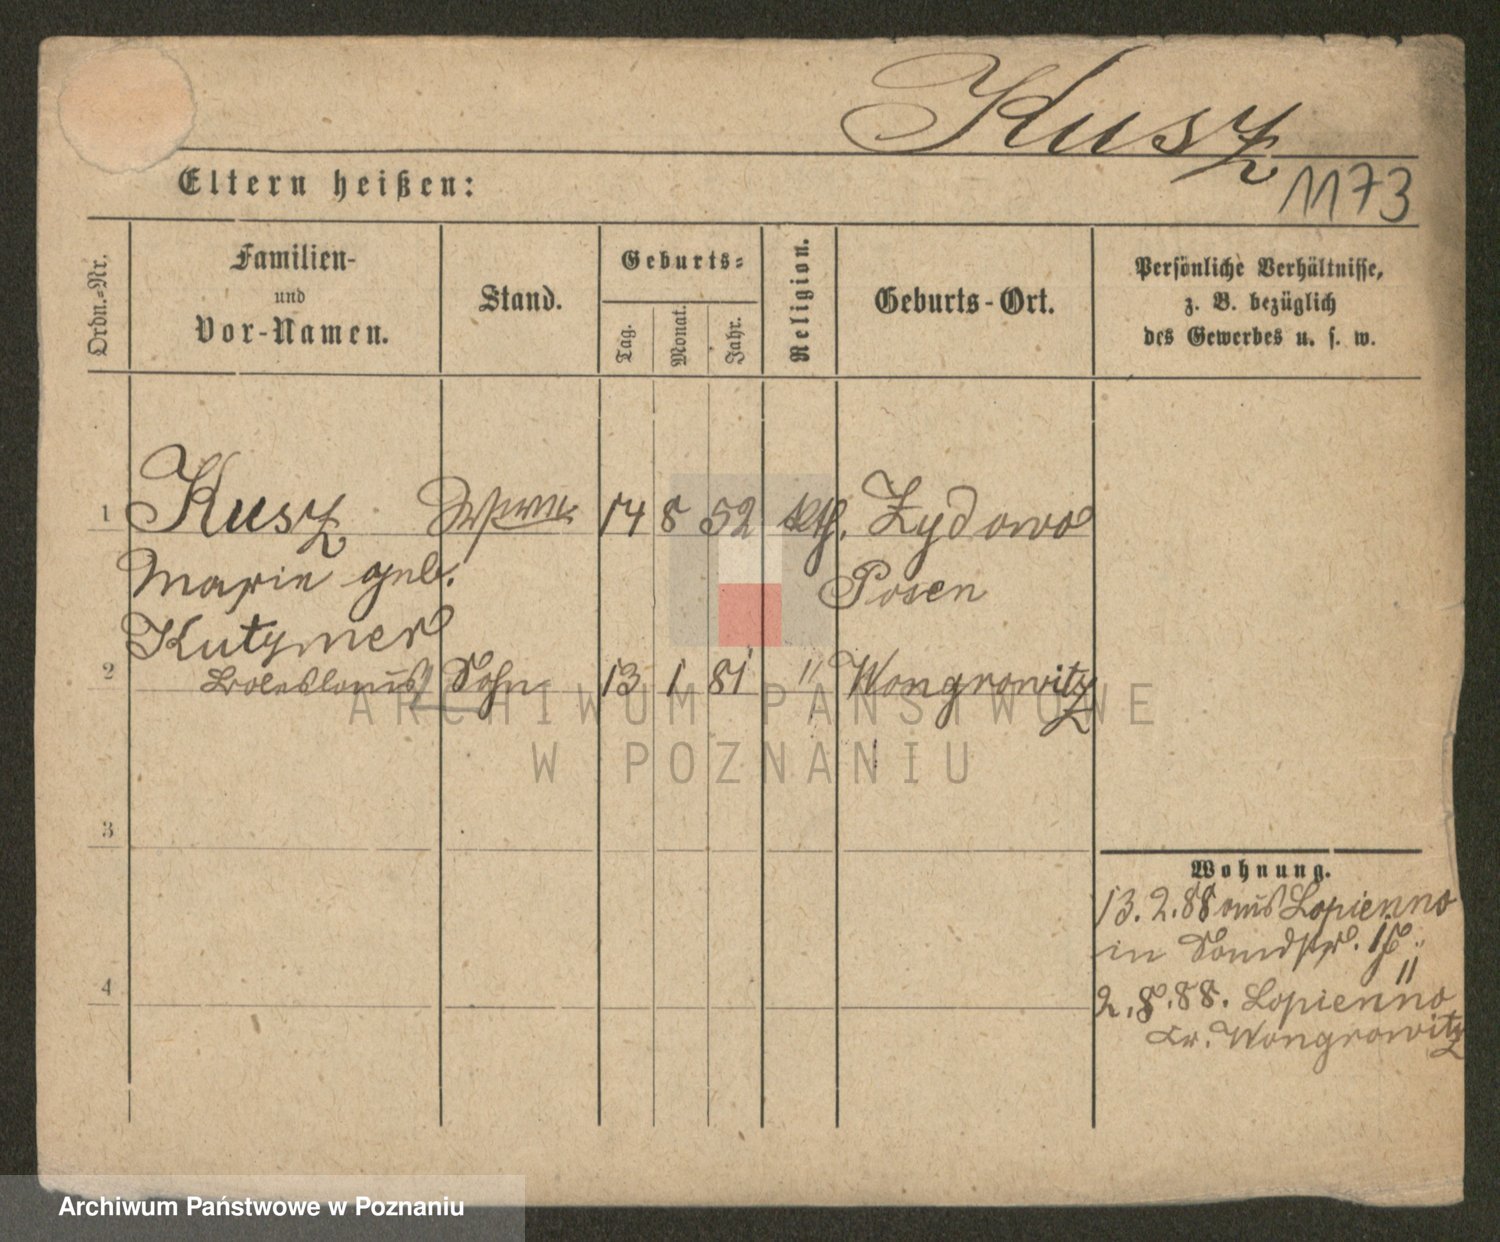 Kusz
Eltern heißen:
1173
Ordn.-Nr.
Familien-
und
Vor-Namen.
Stand.
Geburts-
Tag.
Monat.
Jahr.
Religion.
Geburts-Ort.
Persönliche Verhältnisse,
z. B. bezüglich
des Gewerbes u. s. w.
1 Kusz 14 8 52 kth. Zydowo
Marie geb. Posen
Kutzner
2 Boleslaus Sohn 13 1 81 " Wongrowitz
3
4
Wohnung.
13. 2. 88 aus Lopienno
in
2. 8. 88. Lopienno
Kr. Wongrowitz
ARCHIWUM PAŃSTWOWE
W POZNANIU
Archiwum Państwowe w Poznaniu